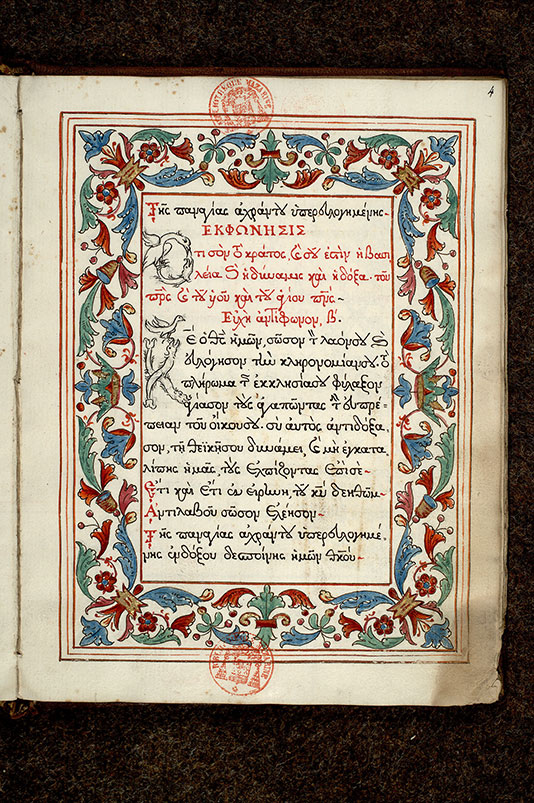 4
BIBLIOTHEQUE MAZARINE
Τῆς παναγίας ἀχράντου ὑπερευλογημένης
ΕΚΦΩΝΗΣΙΣ
Ὅτι σὸν τὸ κράτος, καὶ σοῦ ἐστιν ἡ βασι
λεία καὶ ἡ δύναμις καὶ ἡ δόξα· τοῦ
πρς καὶ τοῦ υἱοῦ καὶ τοῦ ἁγίου πνς
Εὐχὴ ἀντιφώνου, β΄.
Κε ὁ θς ἡμῶν, σῶσον τὸν λαόν σου καὶ
εὐλόγησον τὴν κληρονομίαν σου. τὸ
πλήρωμα τῆς ἐκκλησίας σου φύλαξον
ἁγίασον τοὺς ἀγαπῶντας τὴν εὐπρέ
πειαν τοῦ οἴκου σου. σὺ αὐτοὺς ἀντιδόξα
σον, τῇ θεϊκῇ σου δυνάμει, καὶ μὴ ἐγκατα
λίπῃς ἡμᾶς, τοὺς ἐλπίζοντας ἐπὶ σέ
Ἔτι καὶ ἔτι ἐν εἰρήνῃ, τοῦ κυ δεηθῶμ
Ἀντιλαβοῦ σῶσον ἐλέησον
Τῆς παναγίας ἀχράντου ὑπερευλογημέ
νης ἐνδόξου δεσποίνης ἡμῶν θκου